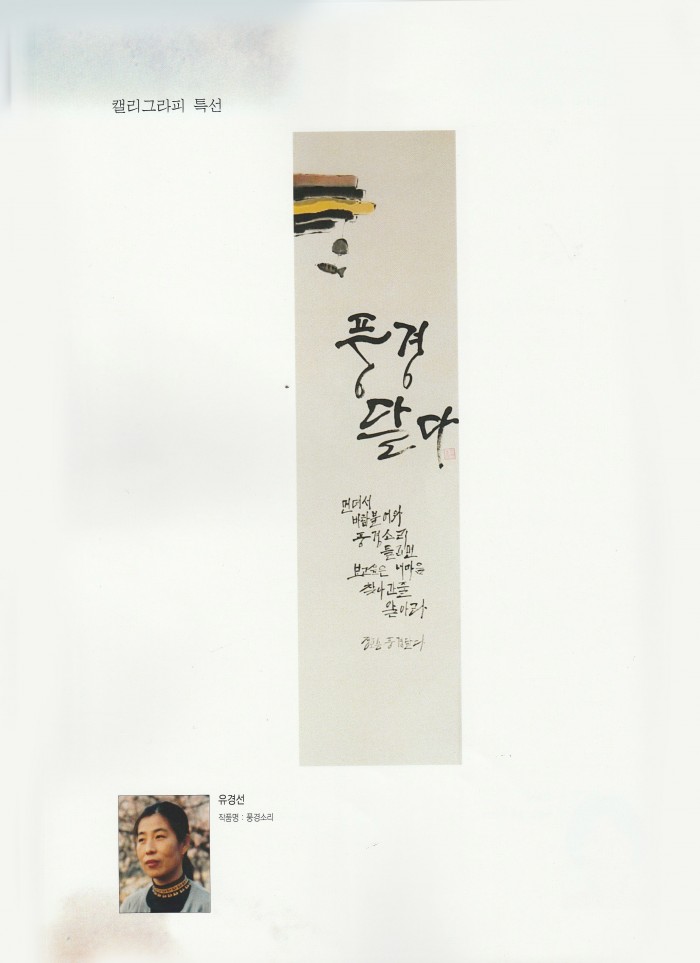 캘리그라피 특선
풍경
달다
먼데서
바람불어와
풍경소리
들리면
보고싶은 내마음
찾아간줄
알아라
풍경달다
유경선
작품명 : 풍경소리